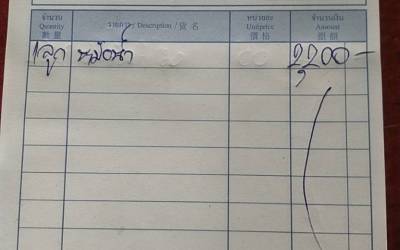 จำนวน รายการ / Description / 貨名 หน่วยละ จำนวนเงิน
Quantity Unitprice Amount
數量 價格 銀額
1ลูก หม้อน้ำ 2,200-